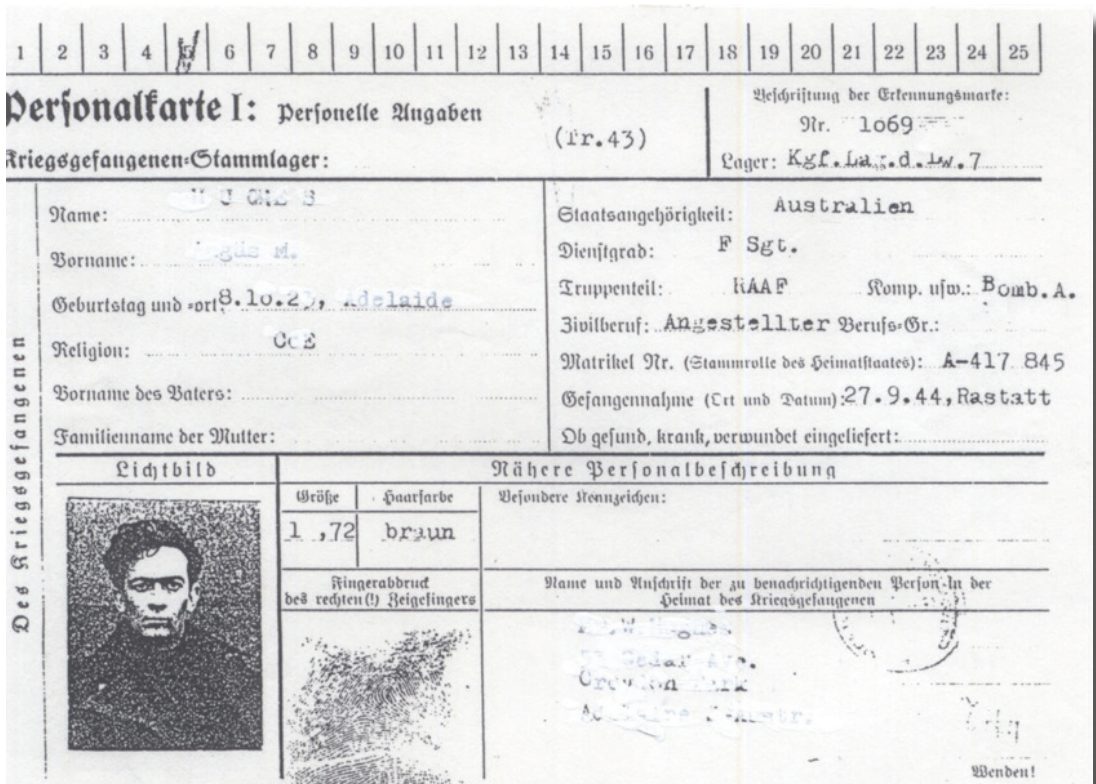 1 2 3 4 5 6 7 8 9 10 11 12 13 14 15 16 17 18 19 20 21 22 23 24 25
Personalkarte I: Personelle Angaben
(Tr.43)
Kriegsgefangenen-Stammlager:
Beschriftung der Erkennungsmarke:
Nr. 1o69
Lager: Kgf.Lag.d.Lw.7
Des Kriegsgefangenen
Name:
Vorname: M.
Geburtstag und -ort: 8.1o. Adelaide
Religion: CoE
Vorname des Vaters:
Familienname der Mutter:
Staatsangehörigkeit: Australien
Dienstgrad: F Sgt.
Truppenteil: RAAF Komp. usw.: Bomb.A.
Zivilberuf: Angestellter Berufs-Gr.:
Matrikel Nr. (Stammrolle des Heimatstaates): A-417 845
Gefangennahme (Ort und Datum): 27.9.44, Rastatt
Ob gesund, krank, verwundet eingeliefert:
Lichtbild
Nähere Personalbeschreibung
Größe Haarfarbe Besondere Kennzeichen:
1,72 braun
Fingerabdruck
des rechten(!) Zeigefingers
Name und Anschrift der zu benachrichtigenden Person in der
Heimat des Kriegsgefangenen
Cedar Ave.
Croydon Park
Wenden!